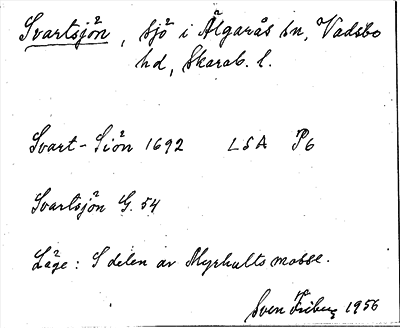 Svartsjön, sjö i Älgarås sn, Vadsbo
hd, Skarab. l.
Svart-Siön 1692 LSA P6
Svartsjön G. 54
Läge: S delen av Myrhults mosse.
Sven Friberg 1956